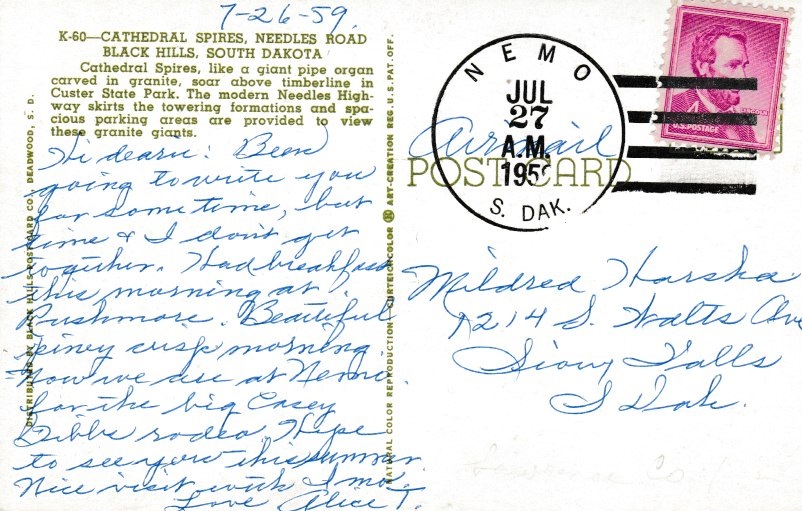 7-26-59.
K-60—CATHEDRAL SPIRES, NEEDLES ROAD
BLACK HILLS, SOUTH DAKOTA
Cathedral Spires, like a giant pipe organ
carved in granite, soar above timberline in
Custer State Park. The modern Needles High-
way skirts the towering formations and spa-
cious parking areas are provided to view
these granite giants.
Hi dearie! Been
going to write you
for some time, but
time & I don't get
together. Had breakfast
this morning at
Rushmore. Beautiful
piney crisp morning.
Now we are at Nemo
for the big Casey
Tibbs rodeo. Hope
to see you this summer.
Nice visit with I mo.
Love Alice T.
DISTRIBUTED BY BLACK HILLS POST CARD CO., DEADWOOD, S. D.
NATURAL COLOR REPRODUCTION COURTEICHCOLOR ART-CREATION REG. U.S. PAT. OFF.
NEMO
JUL
27
A.M.
1959
S. DAK.
U.S. POSTAGE
Airmail
POST CARD
Mildred Harsha
1214 S. Walts Ave
Sioux Falls
S Dak.